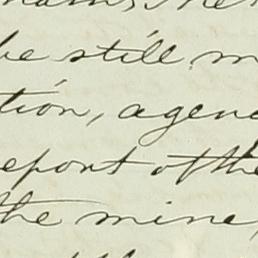 be still m
tion, agenc
eport of the
the mine,